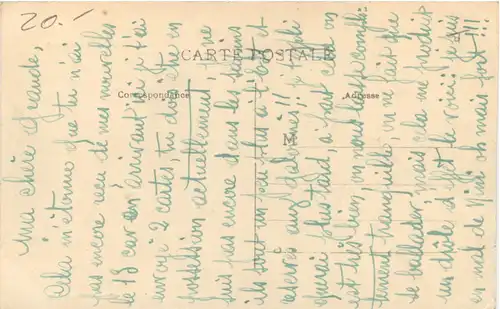 20.-
CARTE POSTALE
Correspondance
Adresse
M
Ma chère Grande,
Cela m'étonne que tu n'ai
pas encore reçu de mes nouvelles
le 13 car en arrivant ici je t'ai
envoyé 2 cartes, tu dois être en
possession actuellement, je ne
suis pas encore dans les avions
ils sont un peu là et
réservés aux galonnés!!!
plus tard, il faut ici on
est très bien, on nous laisse
tranquille, on ne fait que
se ballader, mais cela me produit
un drôle d'effet le voici, je suis
en mal de mais fort!!!